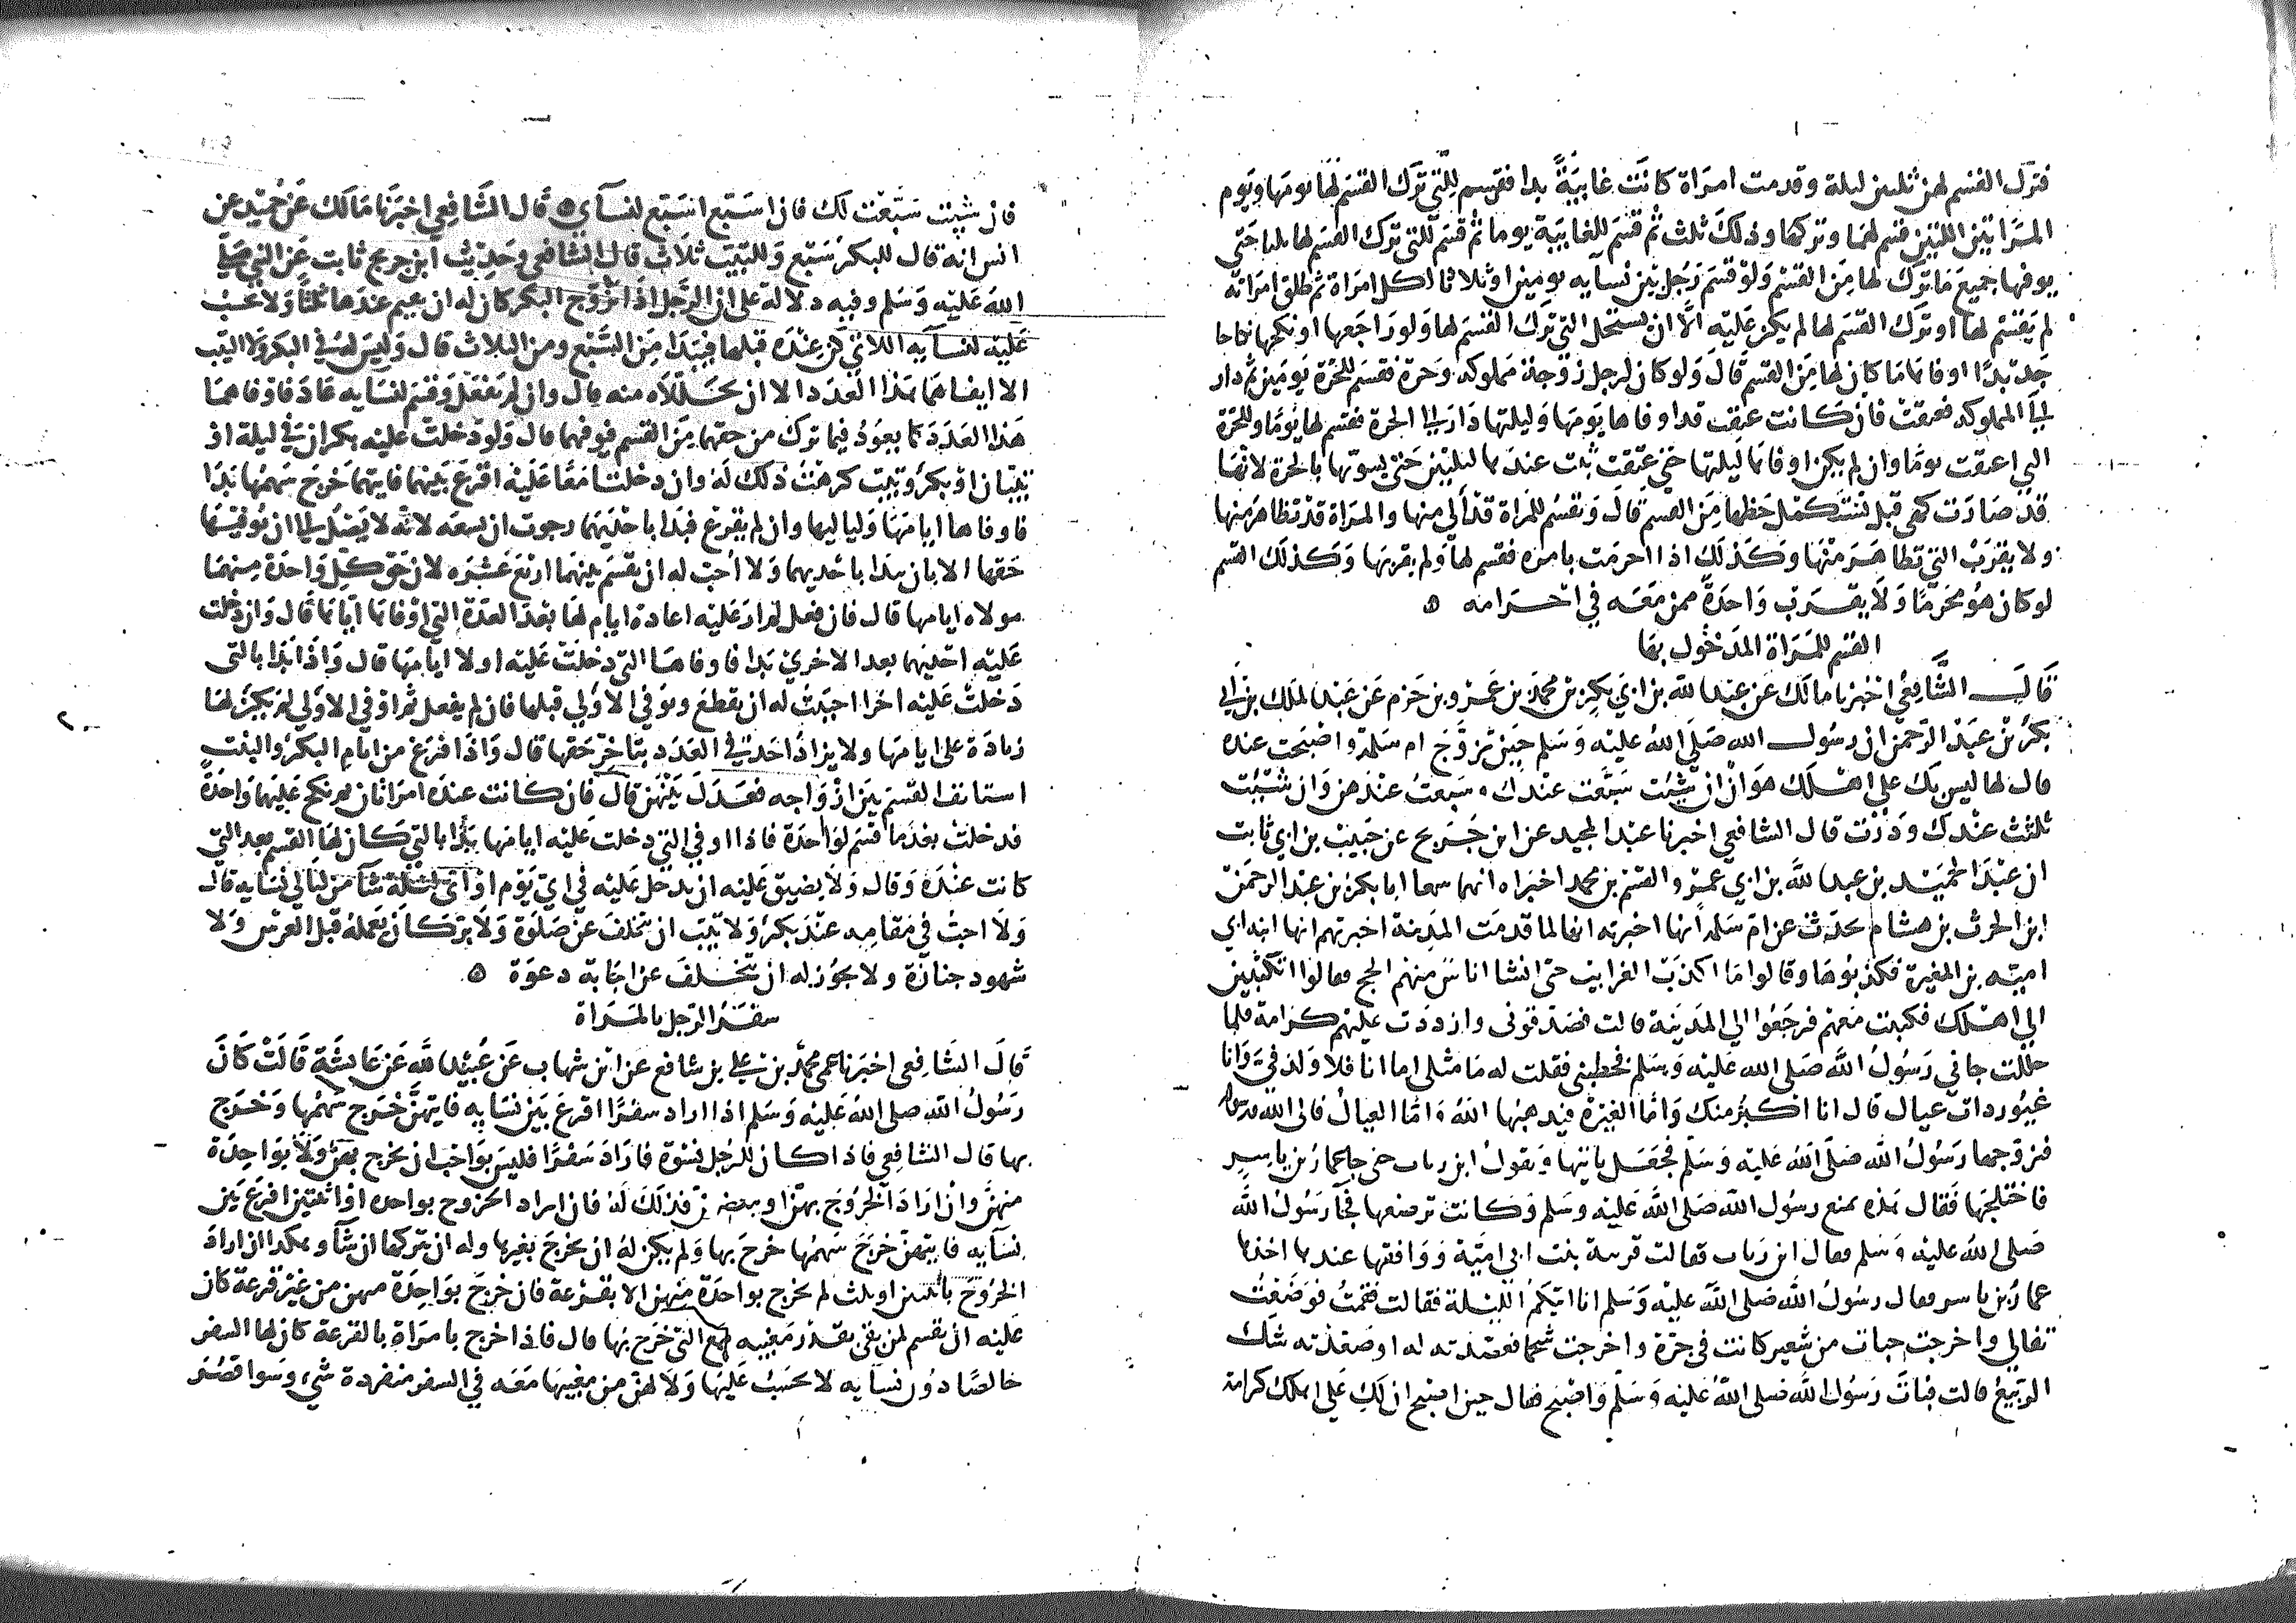 فترك القسم لهن ثلثين ليلة وقدمت امراة كانت غايبة بدا فقسم للتي ترك القسم لها يومها ويوم
المراتين اللتين قسم لهما وتركها وذلك ثلث ثم قسم للغايبة يوما ثم قسم للتي ترك القسم لها ثلثا حتى
يوفيها جميع ما ترك لها من القسم ولو قسم رجل بين نسايه يومين او ثلاثا لكل امراة ثم طلق امراته
لم يقسم لها او ترك القسم لها لم يكن عليه الا ان يستحل التي ترك القسم لها ولو راجعها او نكحها نكاحا
جديدا اوفاها ما كان لها من القسم قال ولو كان لرجل زوجة مملوكة وحرة فقسم للحرة يومين ثم دار
الى المملوكة فعتقت فان كانت عتقت قد اوفاها يومها وليلتها دار الى الحرة فقسم لها يوما وللحرة
التي اعتقت يوما وان لم يكن اوفاها ليلتها حتى عتقت بات عندها ليلتين حتى يسويها بالحرة لانها
قد صارت كهي قبل تستكمل حظها من القسم قال ويقسم للمراة قد آلى منها والمراة قد تظاهر منها
ولا يقرب التي تظاهر منها وكذلك اذا احرمت بامره فقسم لها ولم يقربها وكذلك القسم
لو كان هو محرما ولا يقرب واحدة ممن معه في احرامه ه
القسم للمراة المدخول بها
قال الشافعي اخبرنا مالك عن عبد الله بن ابي بكر بن محمد بن عمرو بن حزم عن عبد الملك بن ابي
بكر بن عبد الرحمن ان رسول الله صلى الله عليه وسلم حين تزوج ام سلمة واصبحت عنده
قال لها ليس بك على اهلك هوان ان شيت سبعت عندك وسبعت عندهن وان شيت
ثلثت عندك ودرت قال الشافعي اخبرنا عبد المجيد عن ابن جريج عن حبيب بن ابي ثابت
ان عبد الحميد بن عبد الله بن ابي عمرو والقسم بن محمد اخبراه انهما سمعا ابا بكر بن عبد الرحمن
ابن الحرث بن هشام يحدث عن ام سلمة انها اخبرته انها لما قدمت المدينة اخبرتهم انها ابنة ابي
امية بن المغيرة فكذبوها وقالوا ما اكذب الغرايب حتى انشا اناس منهم الحج فقالوا اتكتبين
الى اهلك فكتبت معهم فرجعوا الى المدينة قالت فصدقوني وازددت عليهم كرامة فلما
حللت جاني رسول الله صلى الله عليه وسلم فخطبني فقلت له ما مثلي اما انا فلا ولد في وانا
غيور ذات عيال قال انا اكبر منك واما الغيرة فيذهبها الله واما العيال فالى الله ورسوله
فتزوجها رسول الله صلى الله عليه وسلم فجعل ياتيها ويقول اين رباب حتى جا عمار بن ياسر
فاختلجها فقال هذه تمنع رسول الله صلى الله عليه وسلم وكانت ترضعها فجا رسول الله
صلى الله عليه وسلم فقال اين رباب فقالت قريبة بنت ابي امية ووافقها عندها اخذها
عمار بن ياسر فقال رسول الله صلى الله عليه وسلم انا اتيكم الليلة فقالت فقمت فوضعت
ثفالي واخرجت حبات من شعير كانت في جرة واخرجت شحما فعصدته له او صعدته شك
الربيع قالت فبات رسول الله صلى الله عليه وسلم واصبح فقال حين اصبح ان لك على اهلك كرامة
فان شيت سبعت لك فان اسبع اسبع لنسآي ه قال الشافعي اخبرنا مالك عن حميد عن
انس انه قال للبكر سبع وللثيب ثلاث قال الشافعي وحديث ابن جريج ثابت عن النبي صلى
الله عليه وسلم وفيه دلالة على ان الرجل اذا تزوج البكر كان له ان يقيم عندها ولا يحسب
عليه لنسآيه اللاتي كن عنده قبلها فيبدا من السبع ومن الثلاث قال وليس له في البكر ولا الثيب
الا ايفاهما هذا العدد الا ان يحللاه منه قال وان لم يفعل وقسم لنسايه عاد فاوفاهما
هذا العدد كما يعود فيما ترك من حقهما من القسم فيوفيهما قال ولو دخلت عليه بكران في ليلة او
ثيبتان او بكر وثيب كرهت ذلك له وان دخلتا معا عليه اقرع بينهما فايتهما خرج سهمها بدا
فاوفاها ايامها ولياليها وان لم يقرع فبدا باحديهما رجوت ان يسعه لانه لا يصل الى ان يوفيهما
حقهما الا بان يبدا باحديهما ولا احب له ان يقسم بينهما اربع عشرة لان حق كل واحدة منهما
موالاة ايامها قال فان فعل لم ار عليه اعادة ايام لها بعد العدة التي اوفاها اياها قال وان دخلت
عليه احديهما بعد الاخرى بدا فاوفاها التي دخلت عليه اولا ايامها قال واذا بدا بالتي
دخلت عليه اخرا احببت له ان يقطع ويوفي الاولى قبلها فان لم يفعل ثم اوفى الاولى لم يكن لها
زيادة على ايامها ولا يزاد احد في العدد بتاخر حقها قال واذا فرغ من ايام البكر والثيب
استانف القسم بين ازواجه فعدل بينهن قال فان كانت عنده امراتان ثم نكح عليهما واحدة
فدخلت بعد ما قسم لواحدة فاذا اوفى التي دخلت عليه ايامها بدا بالتي كان لها القسم بعد التي
كانت عنده وقال ولا يضيق عليه ان يدخل عليه في اي يوم او اي ليلة شآ من ليالي نسايه قال
ولا احب في مقامه عند بكر ولا ثيب ان يتخلف عن صلوة ولا بر كان يعمله قبل العرس ولا
شهود جنازة ولا يجوز له ان يتخلف عن اجابة دعوة ه
سفر الرجل بالمراة
قال الشافعي اخبرنا عمي محمد بن علي بن شافع عن ابن شهاب عن عبيد الله عن عايشة قالت كان
رسول الله صلى الله عليه وسلم اذا اراد سفرا اقرع بين نسايه فايتهن خرج سهمها وخرج
بها قال الشافعي فاذا كان للرجل نسوة فاراد سفرا فليس بواجب ان يخرج بهن ولا بواحدة
منهن وان اراد الخروج بهن او ببعضهن فذلك له فان اراد الخروج بواحدة او اثنتين اقرع بين
نسآيه فايتهن خرج سهمها خرج بها ولم يكن له ان يخرج بغيرها وله ان يتركها ان شآ وهكذا ان اراد
الخروج باثنتين او ثلث لم يخرج بواحدة منهن الا بقرعة فان خرج بواحدة منهن من غير قرعة كان
عليه ان يقسم لمن بقي بقدر مغيبه مع التي خرج بها قال فاذا خرج بامراة بالقرعة كان لها السفر
خالصا دون نسآيه لا يحسب عليها ولا لهن من مغيبها معه في السفر منفردة شيء وسوا قصر